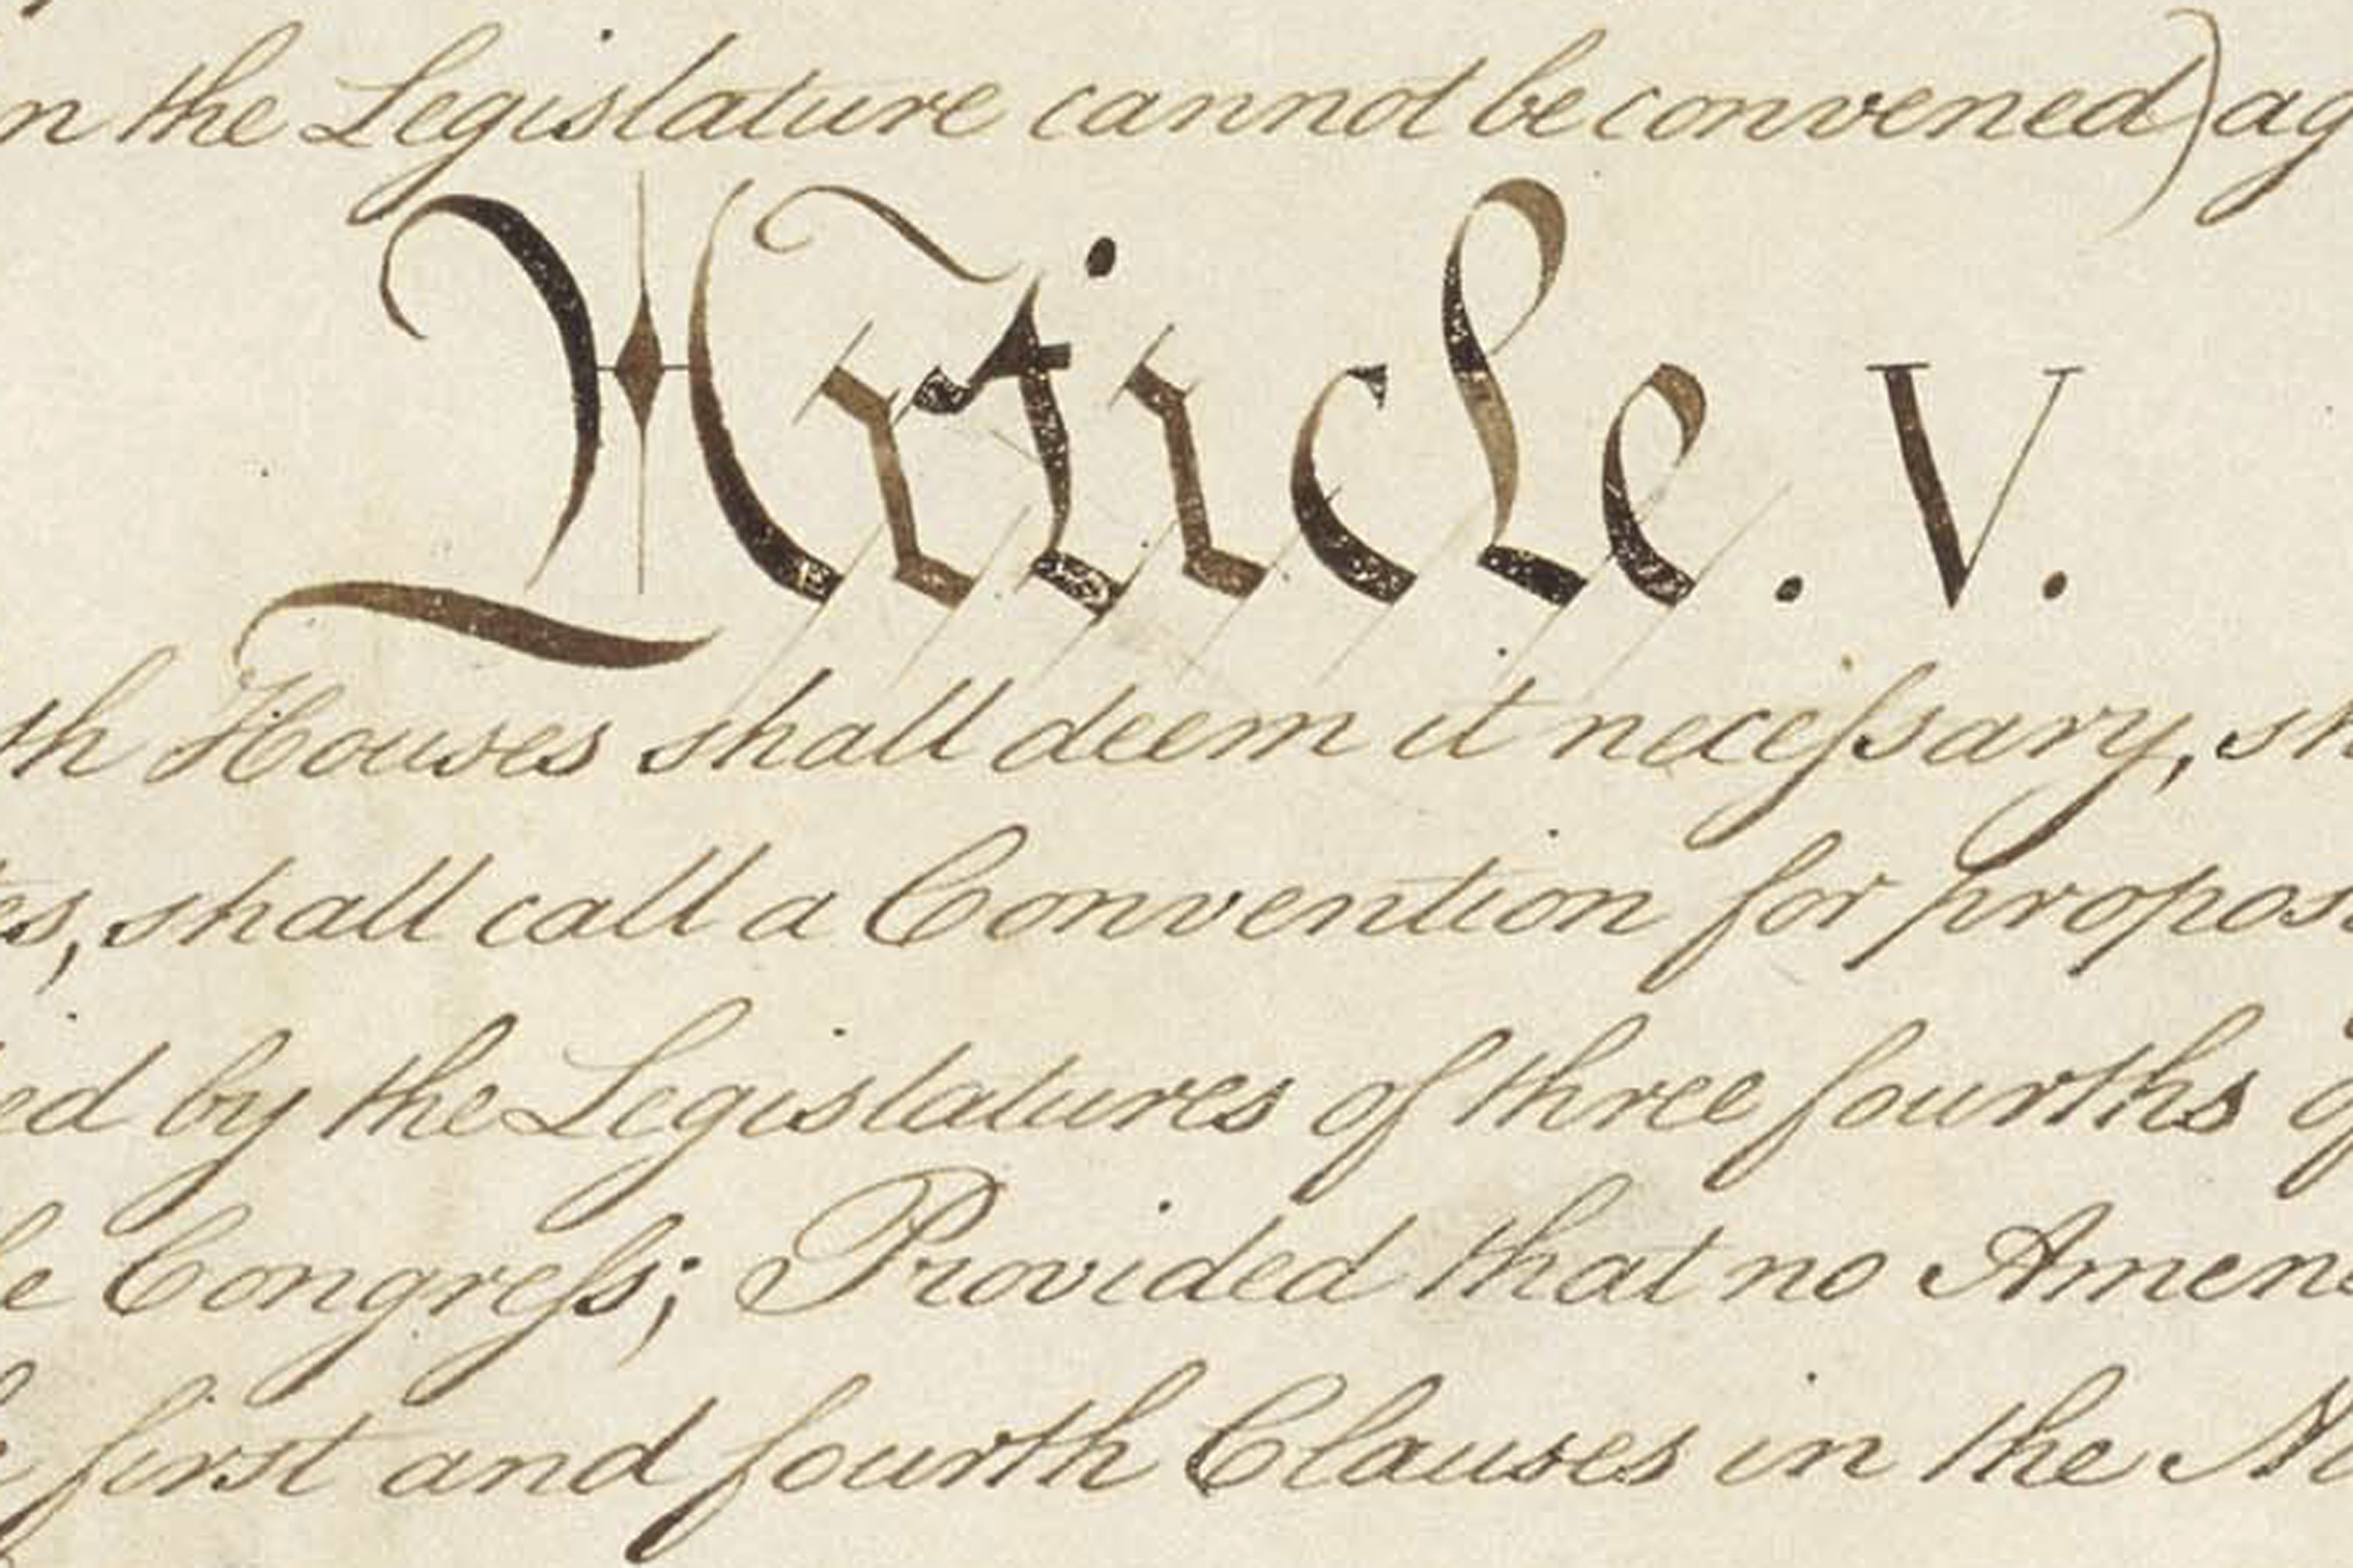 n the Legislature cannot be convened) ag
Article. V.
th Houses shall deem it neceſsary, sh
es, shall call a Convention for propos
ed by the Legislatures of three fourths o
e Congreſs; Provided that no Amen
first and fourth Clauses in the N